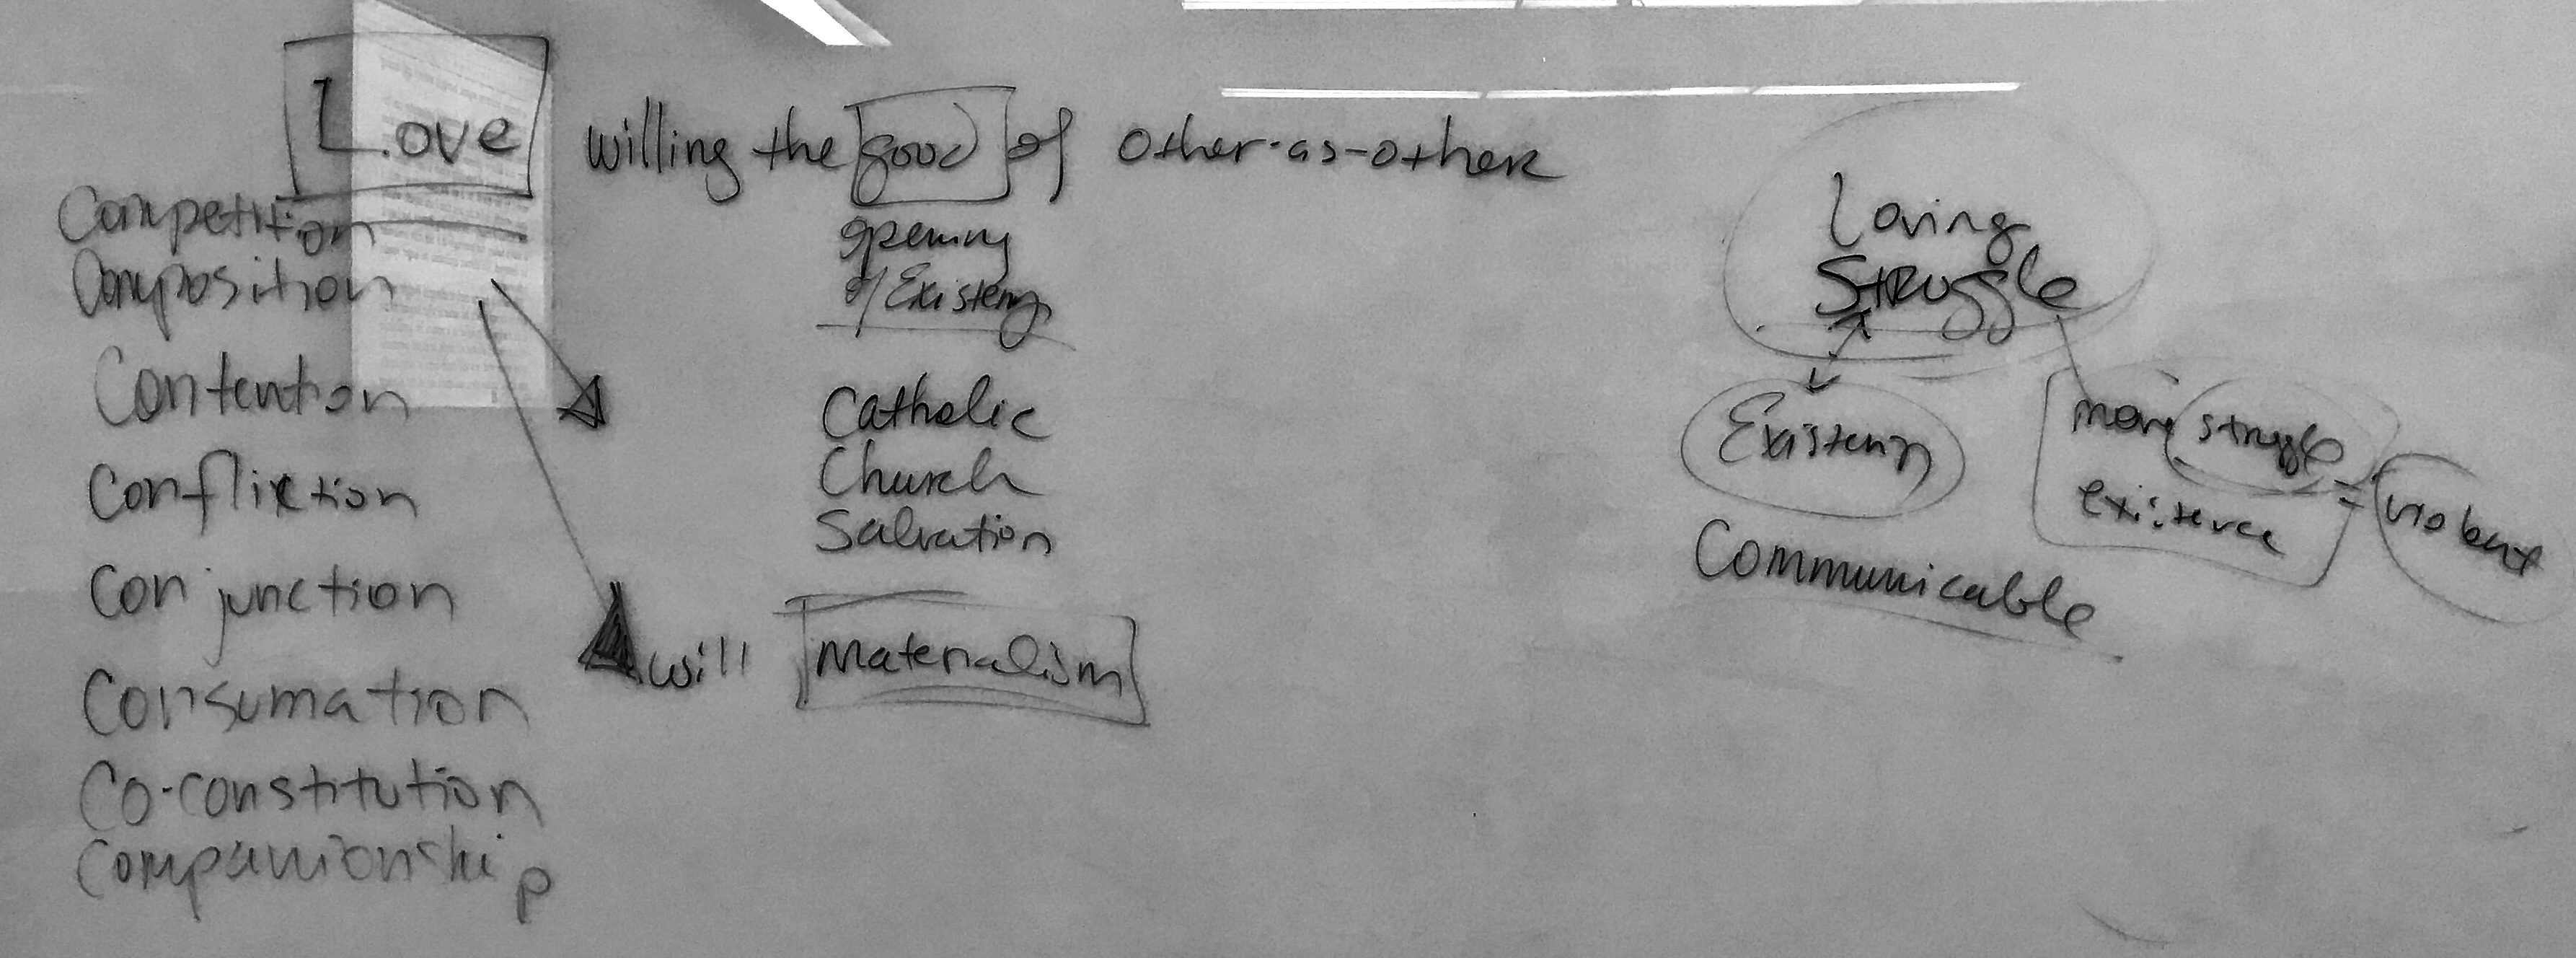 Love
willing the good of other-as-other
Competition
Composition
Contention
Conflixtion
Conjunction
Consumation
Co-constitution
Companionship
opening
of Existenz
Catholic
Church
Salvation
will
Materialism
Loving
Struggle
Existenz
Communicable
more struggle = violent
existence